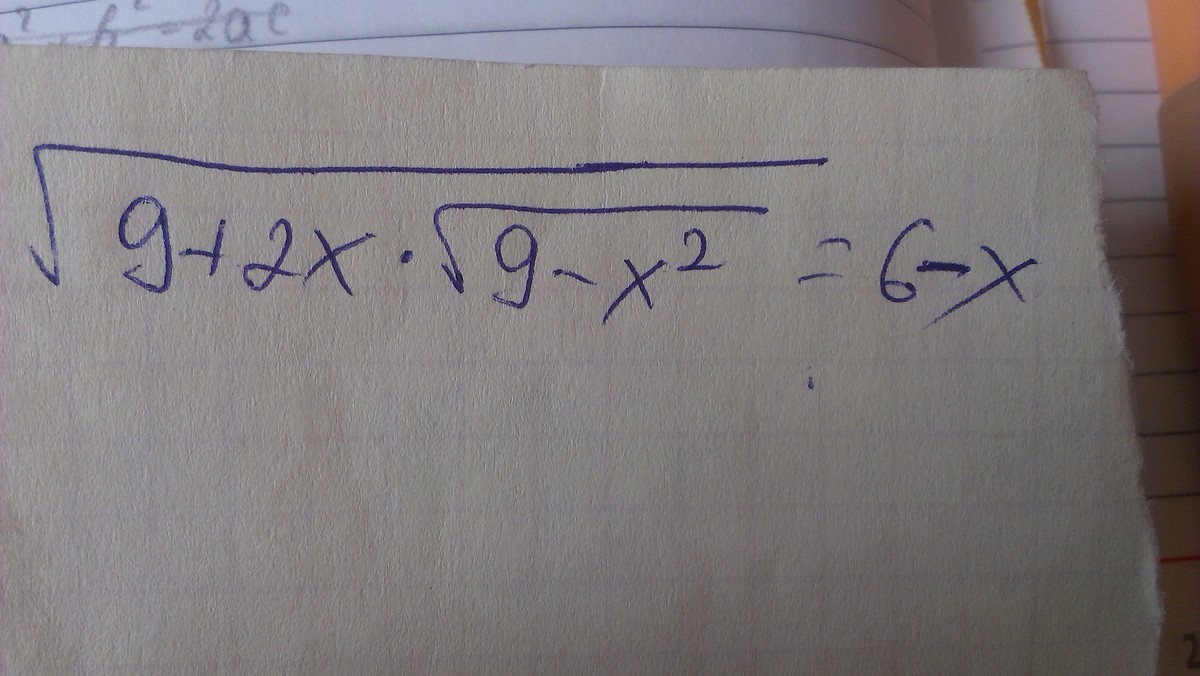 ² + b² = 2ac
√(9+2x·√(9-x²)) = 6-x
2